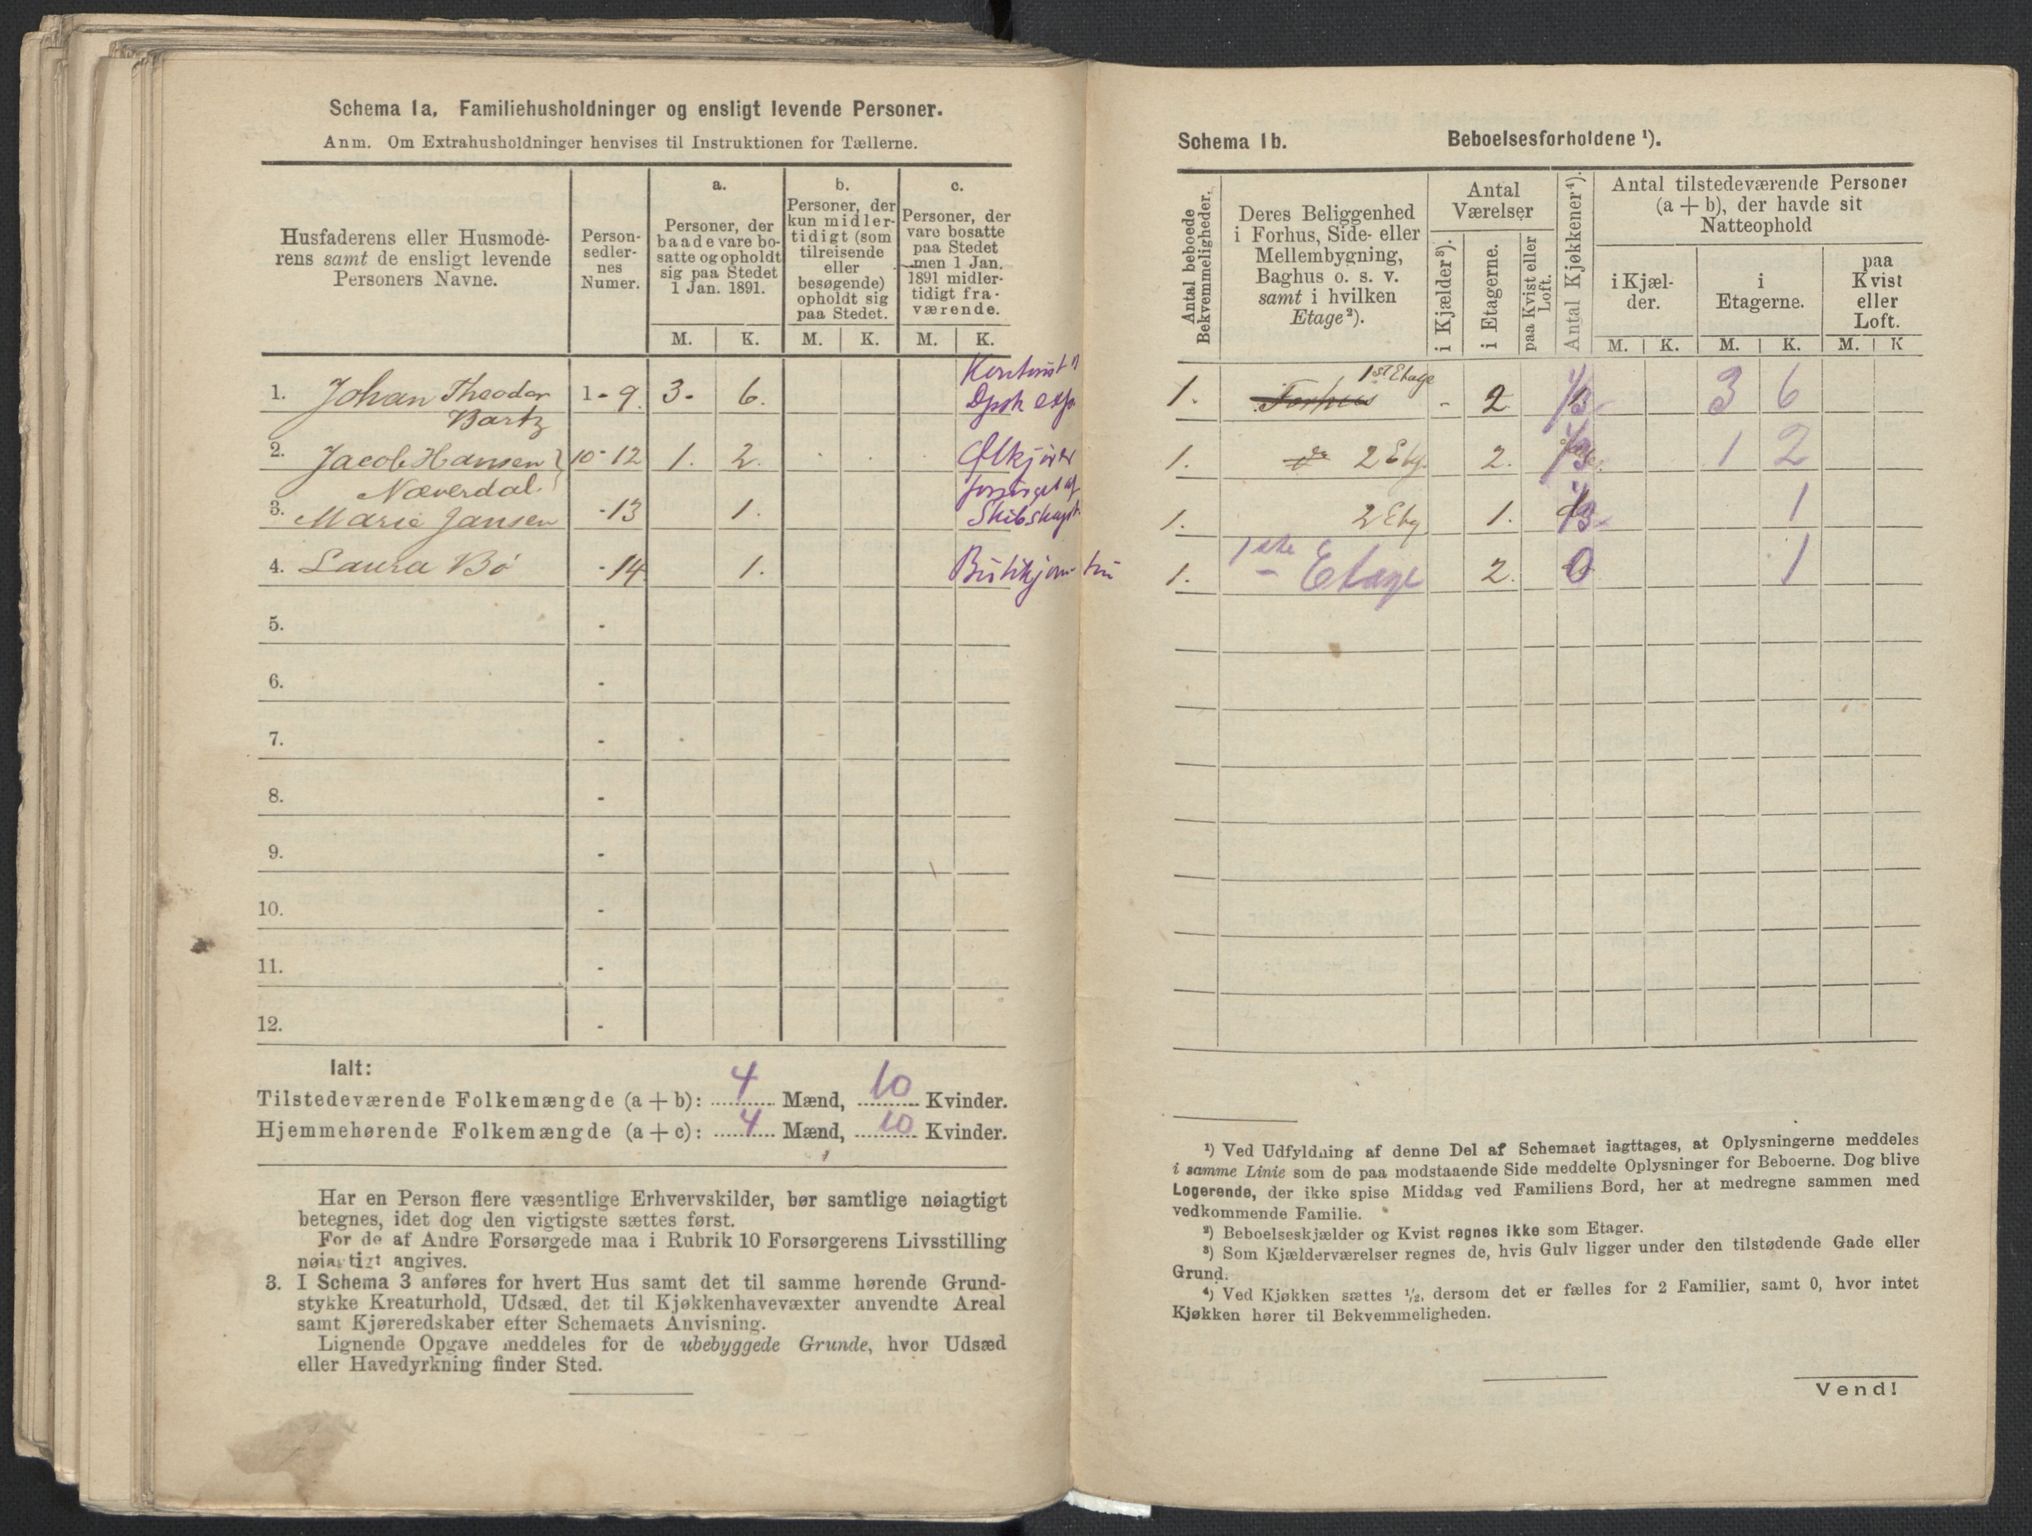 Schema 1a. Familiehusholdninger og ensligt levende Personer.
Anm. Om Extrahusholdninger henvises til Instruktionen for Tællerne.
Husfaderens eller Husmode-
rens samt de ensligt levende
Personers Navne.
Person-
sedler-
nes
Numer.
a.
Personer, der
baade vare bo-
satte og opholdt
sig paa Stedet
1 Jan. 1891.
b.
Personer, der
kun midler-
tidigt (som
tilreisende
eller
besøgende)
opholdt sig
paa Stedet.
c.
Personer, der
vare bosatte
paa Stedet
men 1 Jan.
1891 midler-
tidigt fra-
værende.
M. K. M. K. M. K.
1. Johan Theodor 1-9. 3. 6.
Bartz
2. Jacob Hansen 10-12 1. 2. Ølkjører
Næverdal.
forsørget af
3. Marie Jansen -13 1. Skibskapt.
4. Laura Bø -14 1.
5. -
6. -
7. -
8. -
9. -
10. -
11. -
12. -
Ialt:
Tilstedeværende Folkemængde (a + b): 4 Mænd, 10 Kvinder.
Hjemmehørende Folkemængde (a + c): 4 Mænd, 10 Kvinder.
Har en Person flere væsentlige Erhvervskilder, bør samtlige nøiagtigt
betegnes, idet dog den vigtigste sættes først.
For de af Andre Forsørgede maa i Rubrik 10 Forsørgerens Livsstilling
nøiagtigt angives.
3. I Schema 3 anføres for hvert Hus samt det til samme hørende Grund-
stykke Kreaturhold, Udsæd, det til Kjøkkenhavevæxter anvendte Areal
samt Kjøreredskaber efter Schemaets Anvisning.
Lignende Opgave meddeles for de ubebyggede Grunde, hvor Udsæd
eller Havedyrkning finder Sted.
Schema 1b. Beboelsesforholdene ¹).
Antal beboede
Bekvemmeligheder.
Deres Beliggenhed
i Forhus, Side- eller
Mellembygning,
Baghus o. s. v.
samt i hvilken
Etage²).
Antal
Værelser
i Kjælder³).
i Etagerne.
paa Kvist eller
Loft.
Antal Kjøkkener⁴).
Antal tilstedeværende Personer
(a + b), der havde sit
Natteophold
i Kjæl-
der.
i
Etagerne.
paa
Kvist
eller
Loft.
M. K. M. K. M. K
1. Forhus 1st Etage - 2. 1/3 3 6
1. do 2 Etg. 2. 1/3 1 2
1. 2 Etg 1. 1/3 1
1. 1ste Etage 2. 0 1
¹) Ved Udfyldning af denne Del af Schemaet iagttages, at Oplysningerne meddeles
i samme Linie som de paa modstaaende Side meddelte Oplysninger for Beboerne. Dog blive
Logerende, der ikke spise Middag ved Familiens Bord, her at medregne sammen med
vedkommende Familie.
²) Beboelseskjælder og Kvist regnes ikke som Etager.
³) Som Kjælderværelser regnes de, hvis Gulv ligger under den tilstødende Gade eller
Grund.
⁴) Ved Kjøkken sættes ½, dersom det er fælles for 2 Familier, samt 0, hvor intet
Kjøkken hører til Bekvemmeligheden.
Vend!